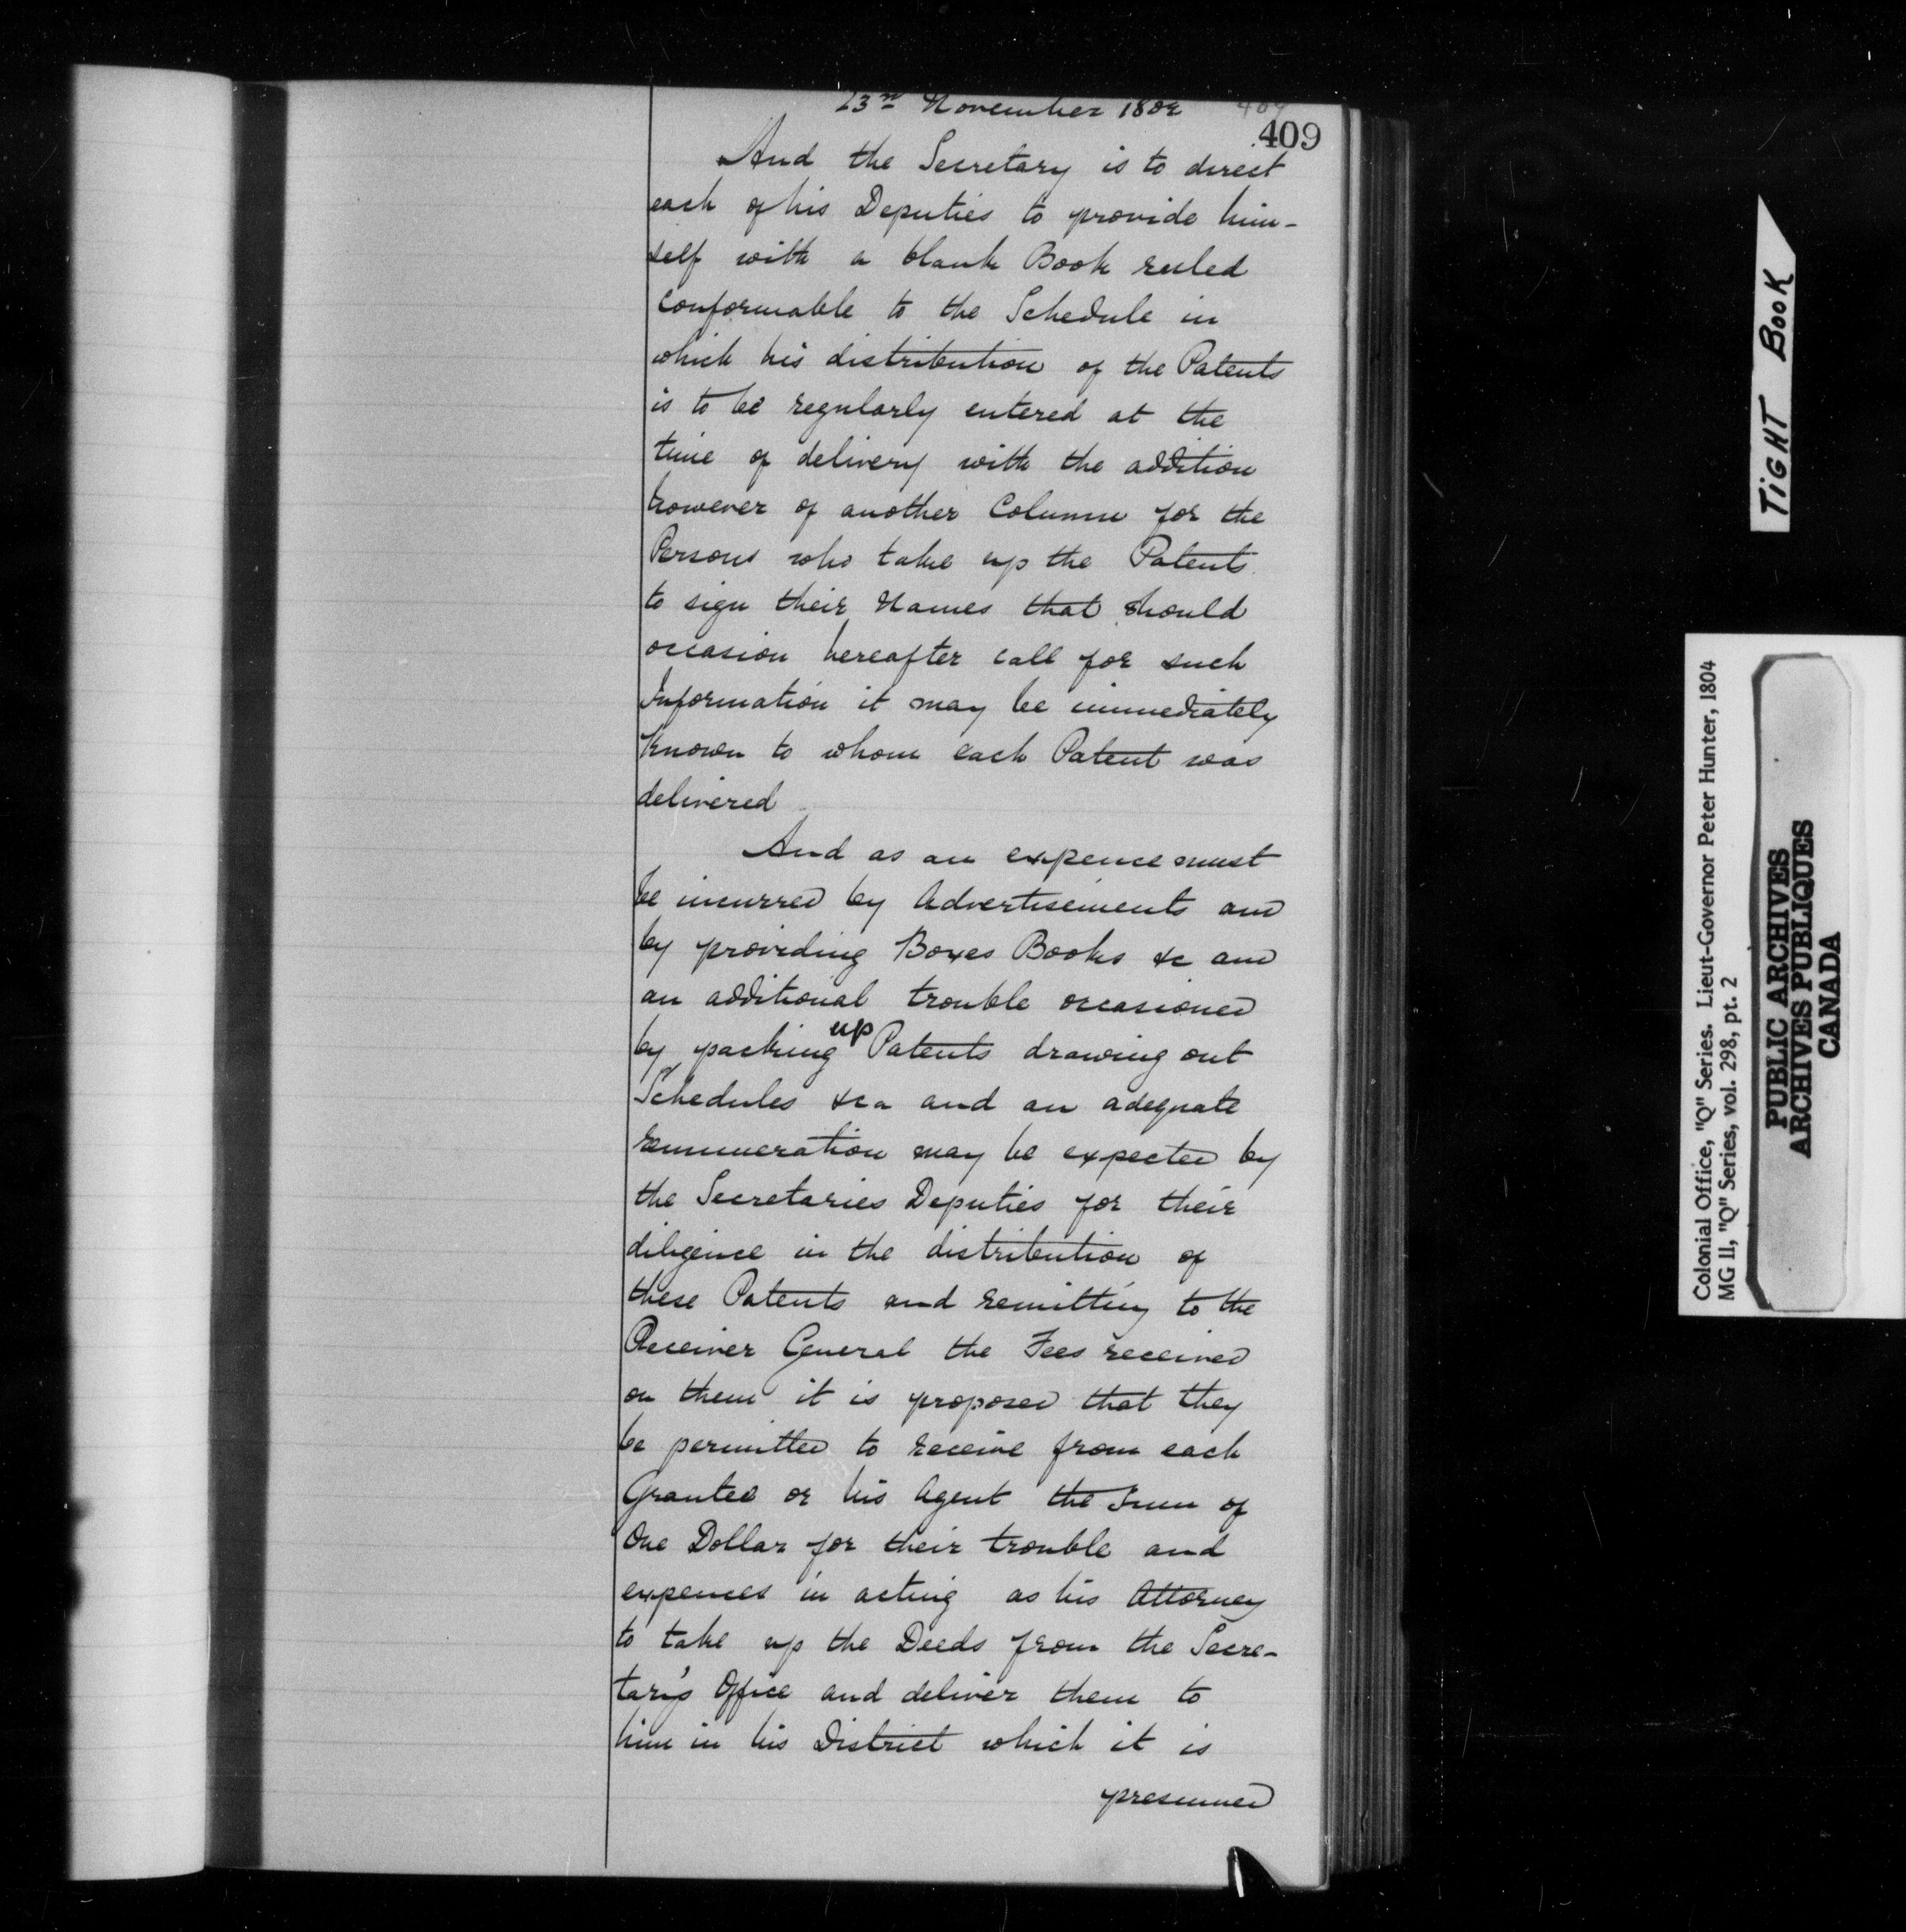 23rd November 1802
409
409
And the Secretary is to direct
each of his Deputies to provide him-
self with a blank Book ruled
conformable to the Schedule in
which his distribution of the Patents
is to be regularly entered at the
time of delivery with the addition
however of another Column for the
Persons who take up the Patents
to sign their Names that should
occasion hereafter call for such
Information it may be immediately
Known to whom each Patent was
delivered
And as an expence must
be incurred by Advertisements and
by providing Boxes Books &c and
an additional trouble occasioned
by packing up Patents drawing out
Schedules &ca and an adequate
remuneration may be expected by
the Secretaries Deputies for their
diligence in the distribution of
these Patents and remitting to the
Receiver General the Fees received
on them it is proposed that they
be permitted to receive from each
Grantee or his Agent the Sum of
One Dollar for their trouble and
expences in acting as his Attorney
to take up the Deeds from the Secre-
tary's Office and deliver them to
him in his District which it is
presumed
TIGHT BOOK
Colonial Office, "Q" Series. Lieut-Governor Peter Hunter, 1804
MG 11, "Q" Series, vol. 298, pt. 2
PUBLIC ARCHIVES
ARCHIVES PUBLIQUES
CANADA